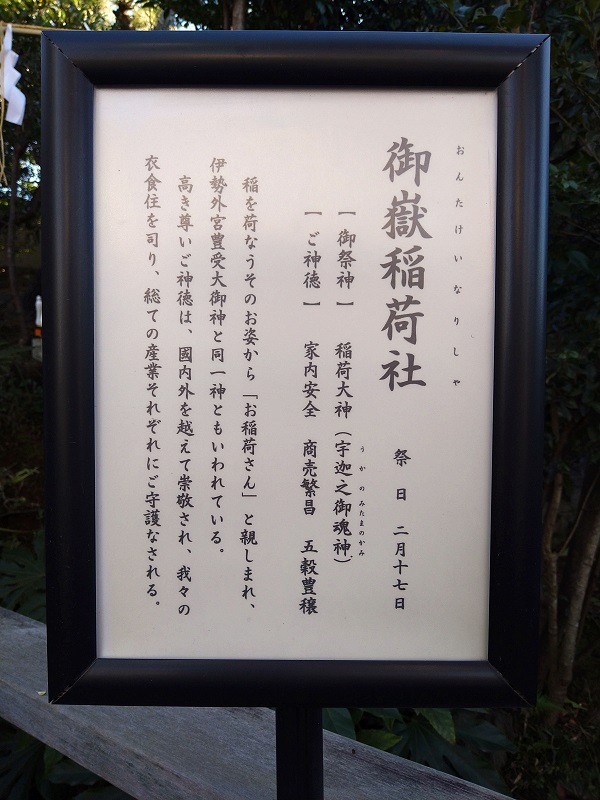 おんたけいなりしゃ
御嶽稲荷社 祭日 二月十七日
【御祭神】 稲荷大神(宇迦之御魂神)
うかのみたまのかみ
【ご神徳】 家内安全 商売繁昌 五穀豊穣
稲を荷なうそのお姿から「お稲荷さん」と親しまれ、
伊勢外宮豊受大御神と同一神ともいわれている。
高き尊いご神徳は、國内外を越えて崇敬され、我々の
衣食住を司り、総ての産業それぞれにご守護なされる。